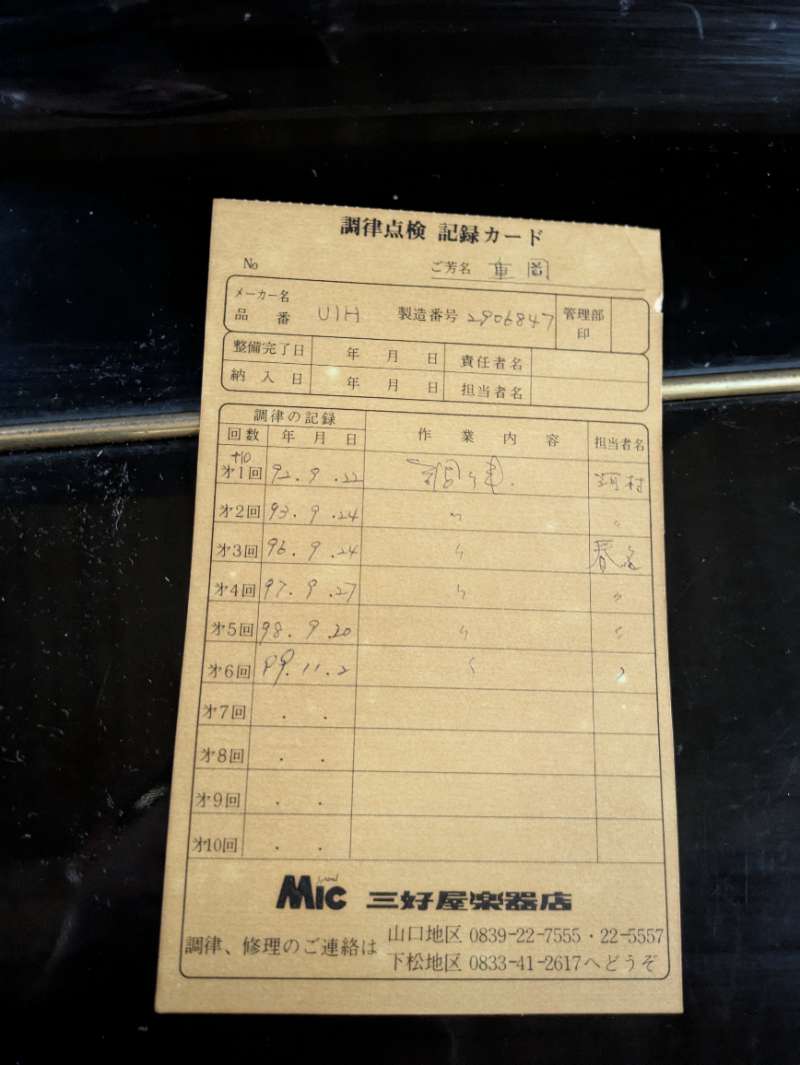 調律点検 記録カード
No ご芳名 重岡
メーカー名
品番 U1H 製造番号 2906847 管理部印
整備完了日 年 月 日 責任者名
納入日 年 月 日 担当者名
調律の記録 作業内容 担当者名
回数 年 月 日
+10
才1回 92.9.22 調律.
才2回 93.9.24 〃 〃
才3回 96.9.24 〃
才4回 97.9.27 〃 〃
才5回 98.9.20 〃 〃
才6回 99.11.2 〃 〃
才7回 . .
才8回 . .
才9回 . .
才10回 . .
Mic 三好屋楽器店
調律、修理のご連絡は 山口地区 0839-22-7555・22-5557
下松地区 0833-41-2617へどうぞ